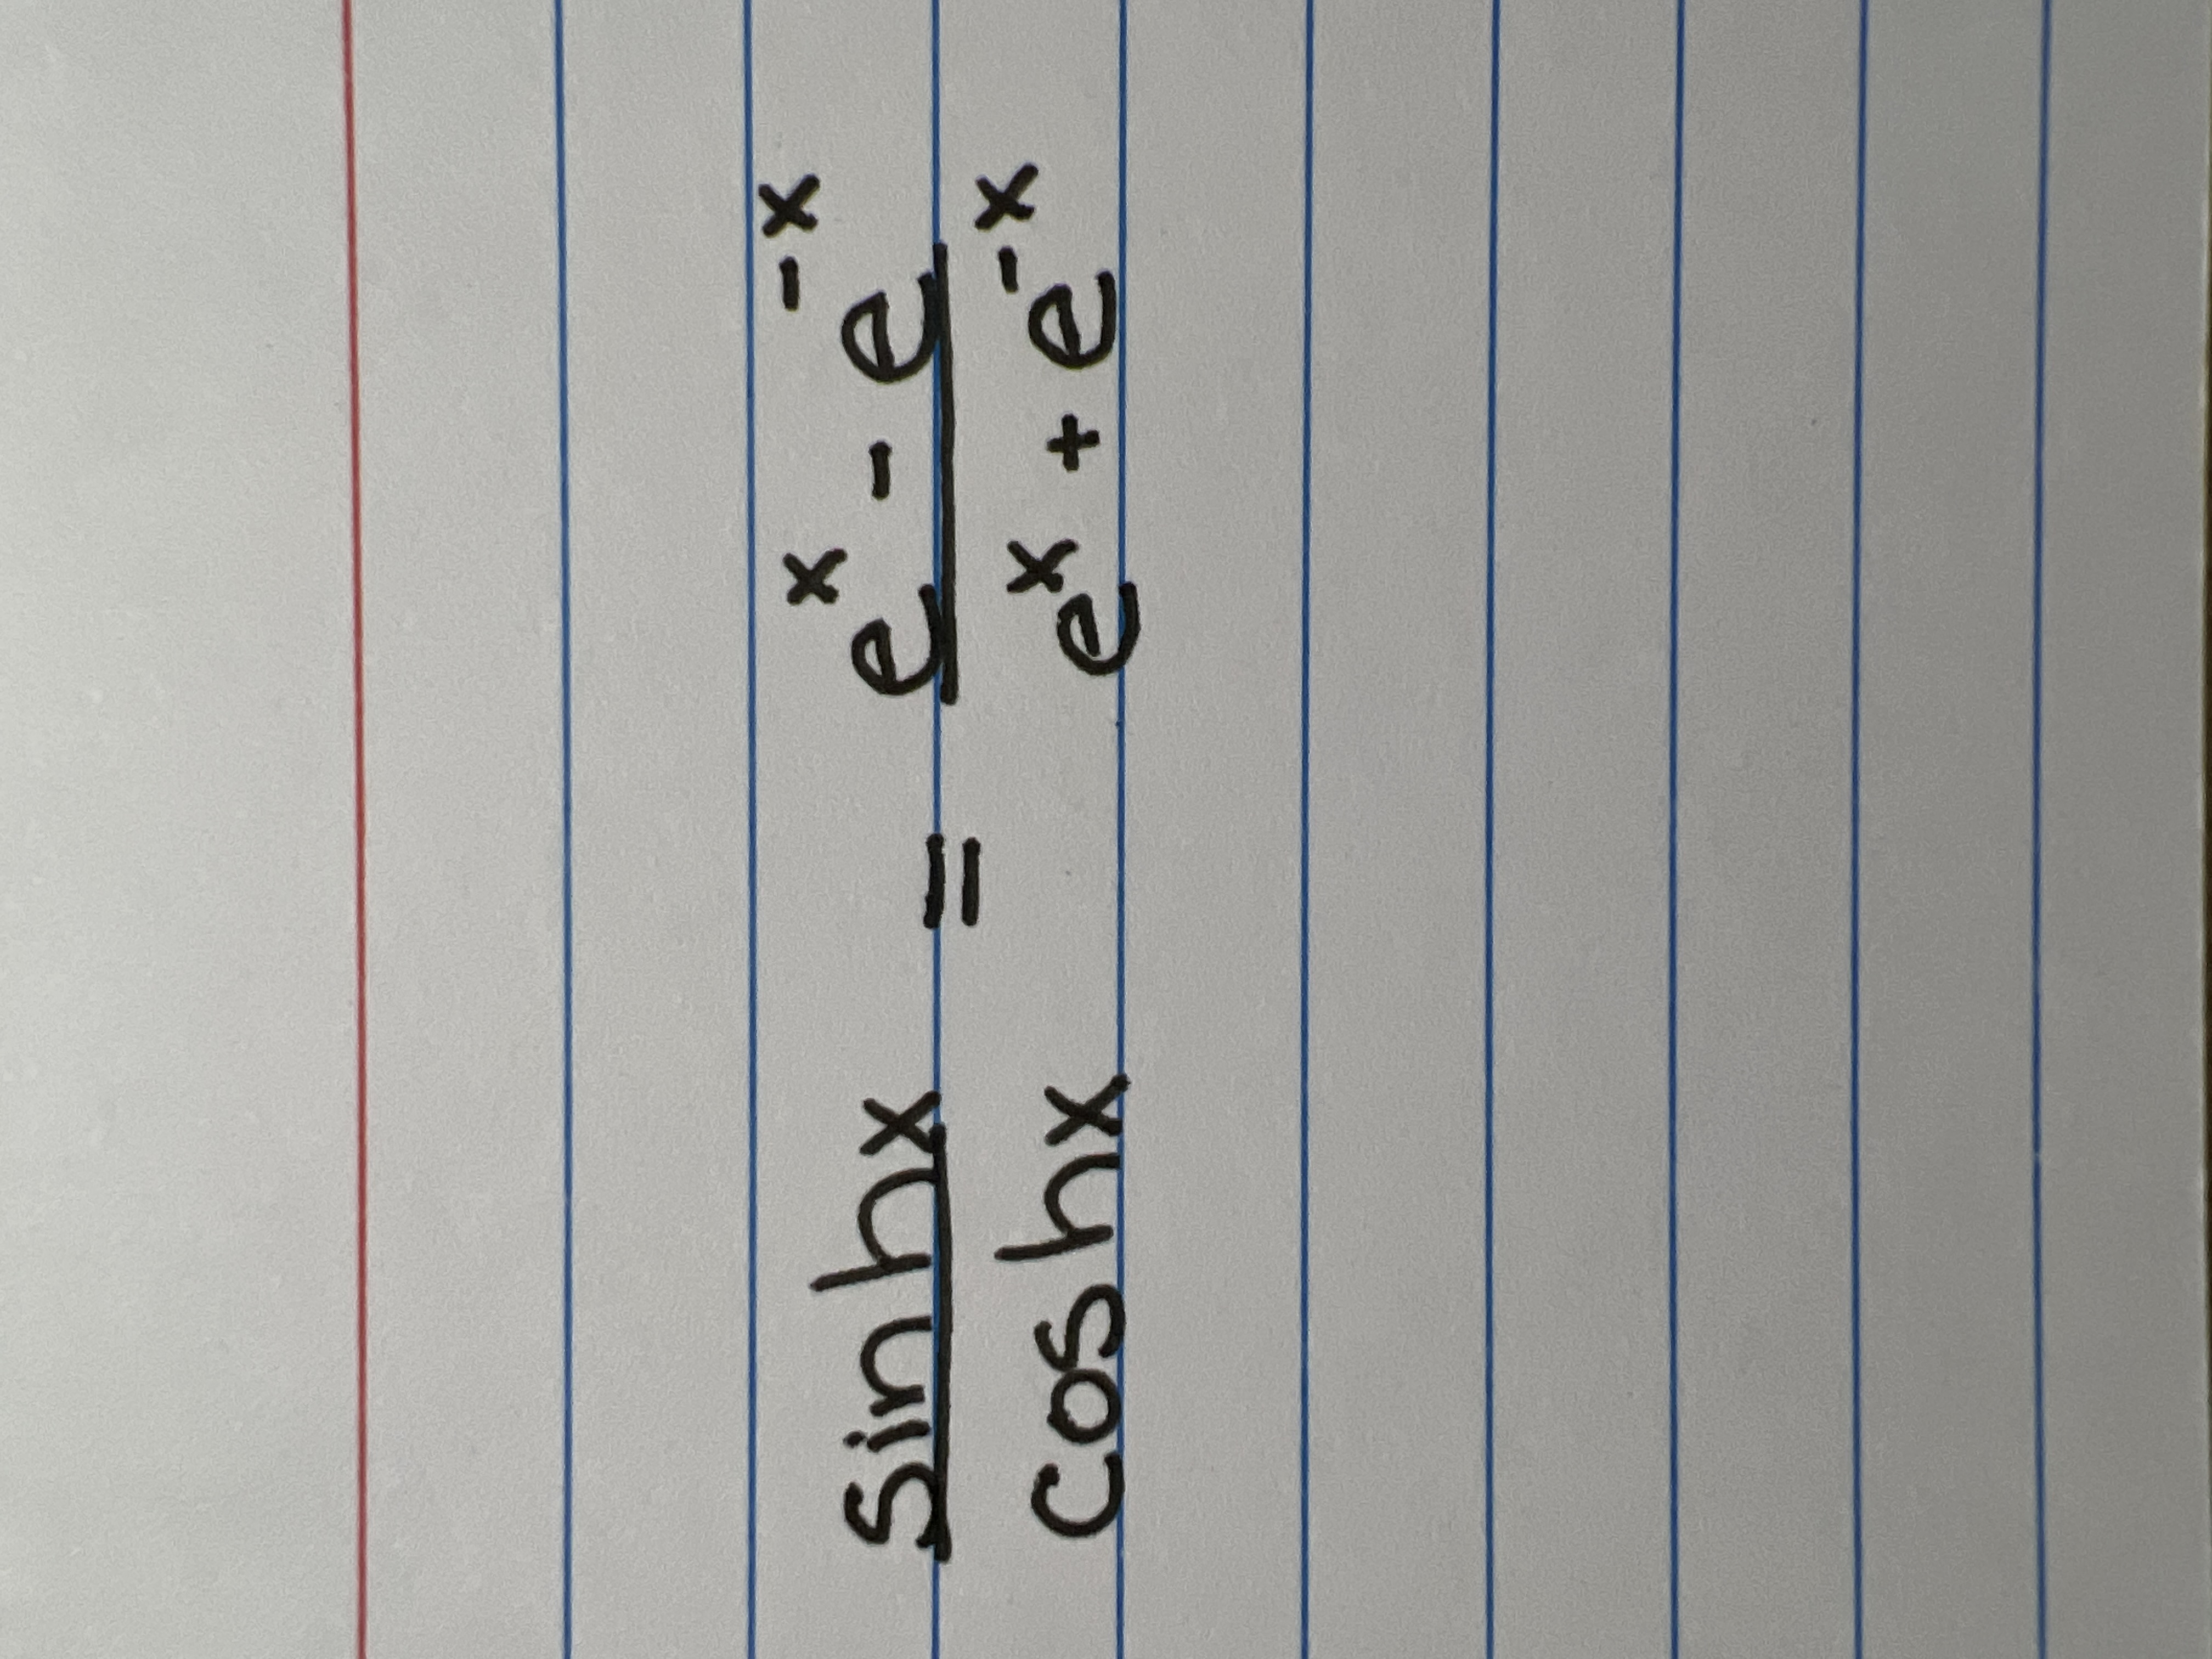 sinhx / coshx = e^x - e^-x / e^x + e^-x